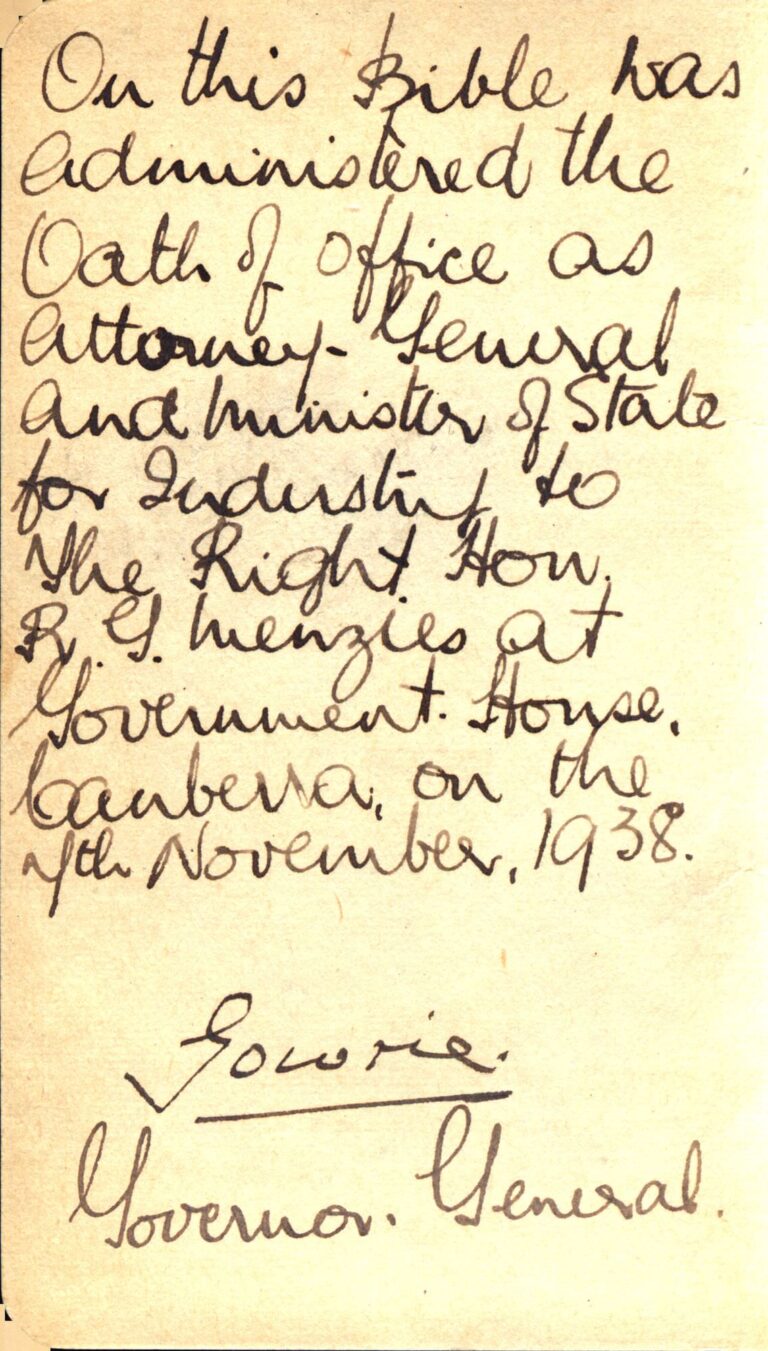 On this Bible was
administered the
Oath of Office as
Attorney-General
and Minister of State
for Industry to
The Right Hon.
R. G. Menzies at
Government House,
Canberra, on the
7th November, 1938.
Gowrie.
Governor-General.